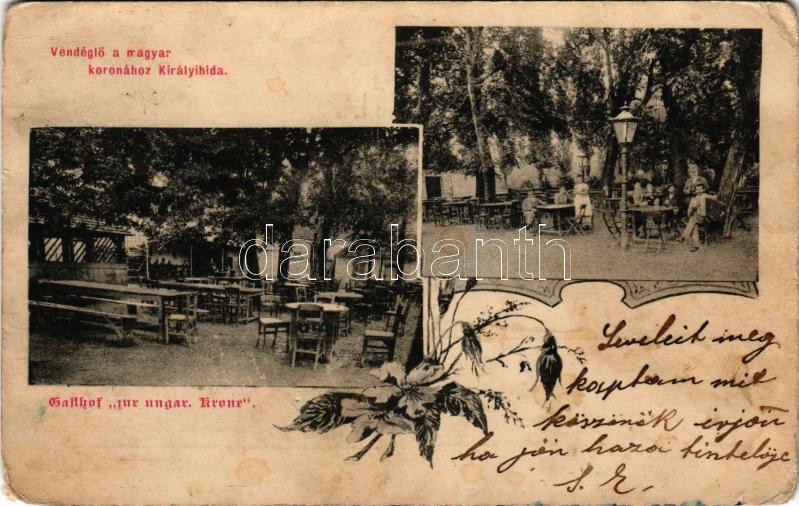 Vendéglő a magyar
koronához Királyihida.
darabanth.com
Gasthof „zur ungar. Krone".
Leveleit meg
kaptam mit
köszönök irjon
ha jön haza tisztelője
S. E.